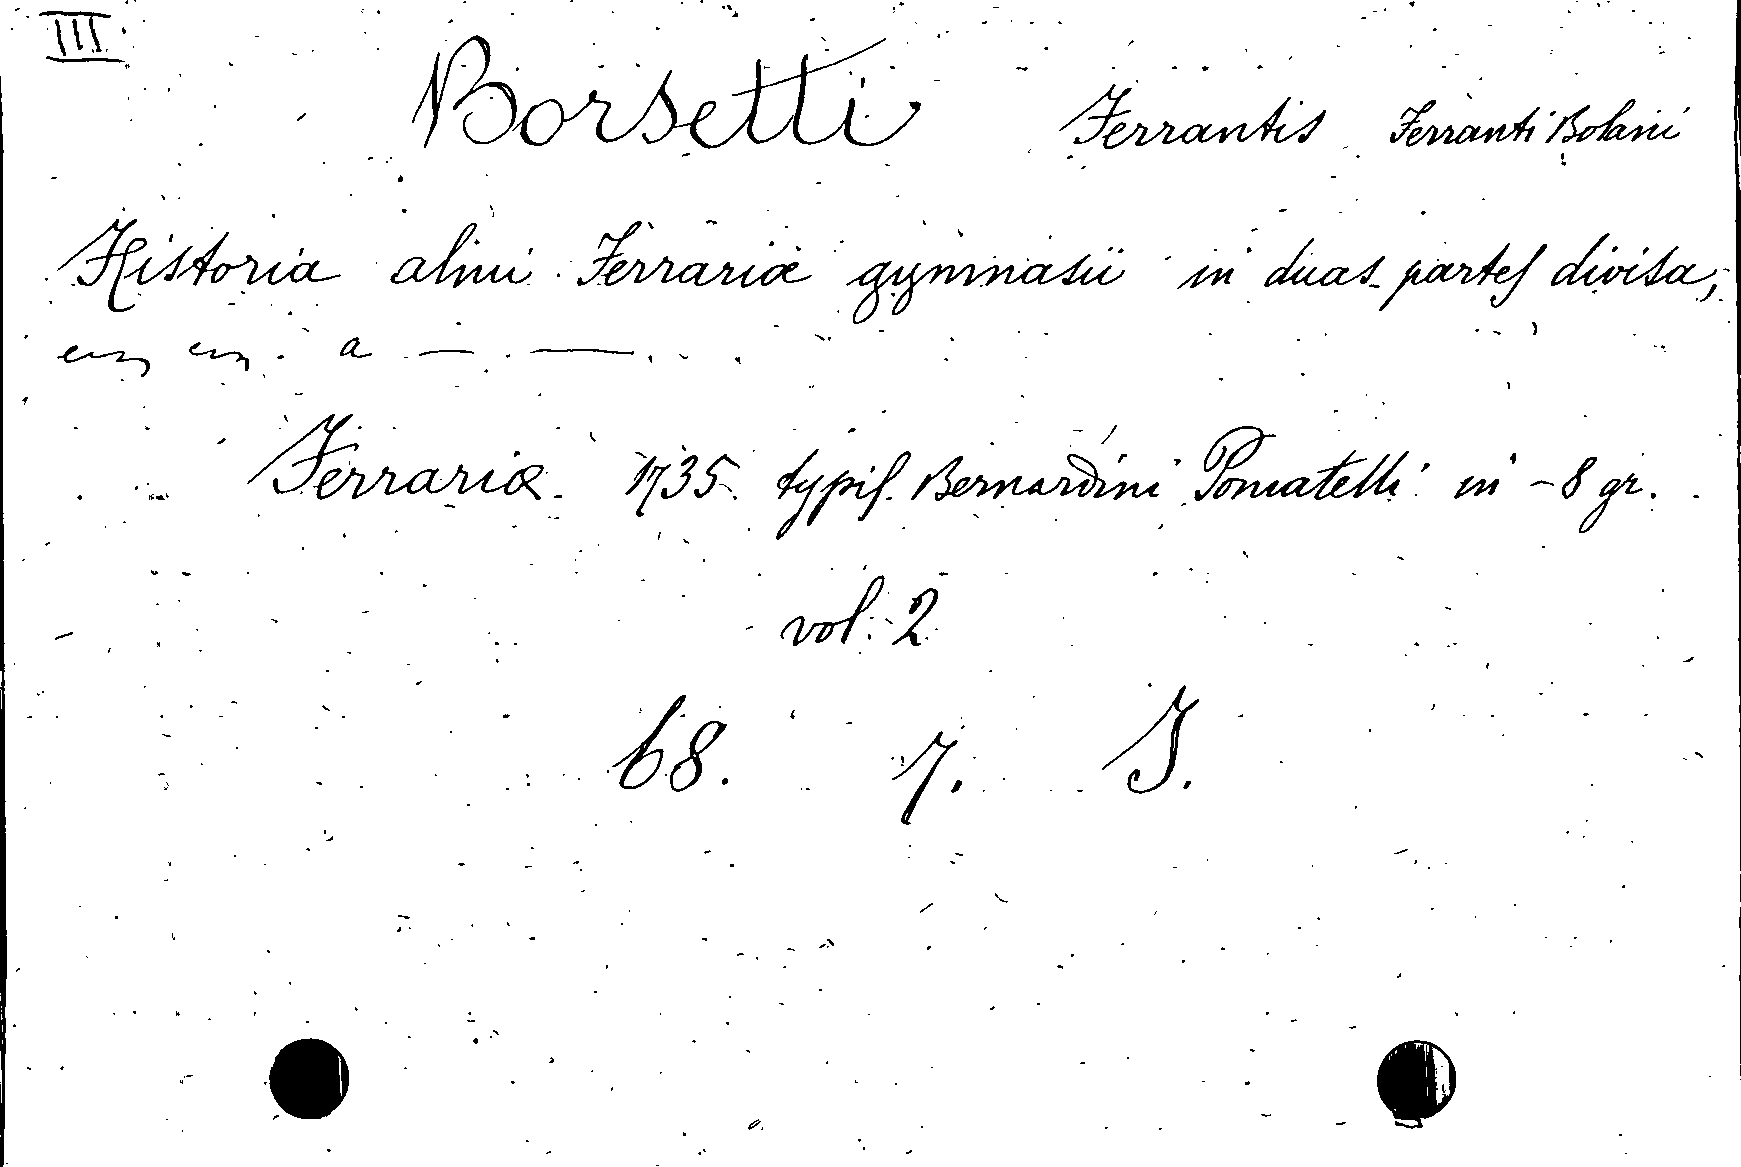 III
Borsetti Ferrantis Ferranti Bolani
Historia almi Ferrariæ gymnasii in duas partes divisa;
a
Ferrariæ. 1735. typis. Bernardini Pomatelli in -8 gr.
vol. 2
68. 7. I.